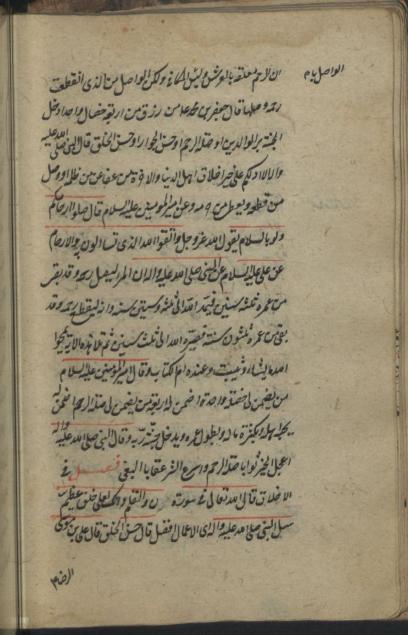 ان الرحم معلقة بالعرش وليس المكافئ ولكن الواصل من الذي انقطعت
رحمه وصلها قال جعفر بن محمد ع من رزق من اربع خصال واحدة دخل
الجنة بر الوالدين او صلة الرحم او حسن الجوار او حسن الخلق قال النبي صلى الله عليه
واله الا ادلكم على خير اخلاق اهل الدنيا والاخرة من عفا عن من ظلمه ووصل
من قطعه ويعطي من حرمه وعن امير المؤمنين عليه السلام قال صلوا ارحامكم
ولو بالسلام يقول الله عز وجل واتقوا الله الذي تسائلون به والارحام
عن علي عليه السلام عن النبي صلى الله عليه واله ان المرء ليصل رحمه وقد بقي
من عمره ثلثة سنين فيمده الله الى ثلثة وستين سنة وانه ليقطع رحمه وقد
بقي من عمره ثلثون سنة فيصيره الله الى ثلث سنين ثم تلا هذه الاية يمحوا
الله ما يشاء ويثبت وعنده ام الكتاب وقال امير المؤمنين عليه السلام
من يضمن لي خصلة واحدة اضمن له اربعة من يضمن لي صلة الرحم اضمن له
يحبه اهله ويكثر ماله ويطول عمره ويدخل جنة ربه وقال النبي صلى الله عليه واله
اعجل الخير ثوابا صلة الرحم واسرع الشر عقابا البغي فصل في
الاخلاق قال الله تعالى في سورة ن والقلم وانك لعلى خلق عظيم
سئل النبي صلى الله عليه واله اي الاعمال افضل قال حسن الخلق قال علي بن موسى
الرضا